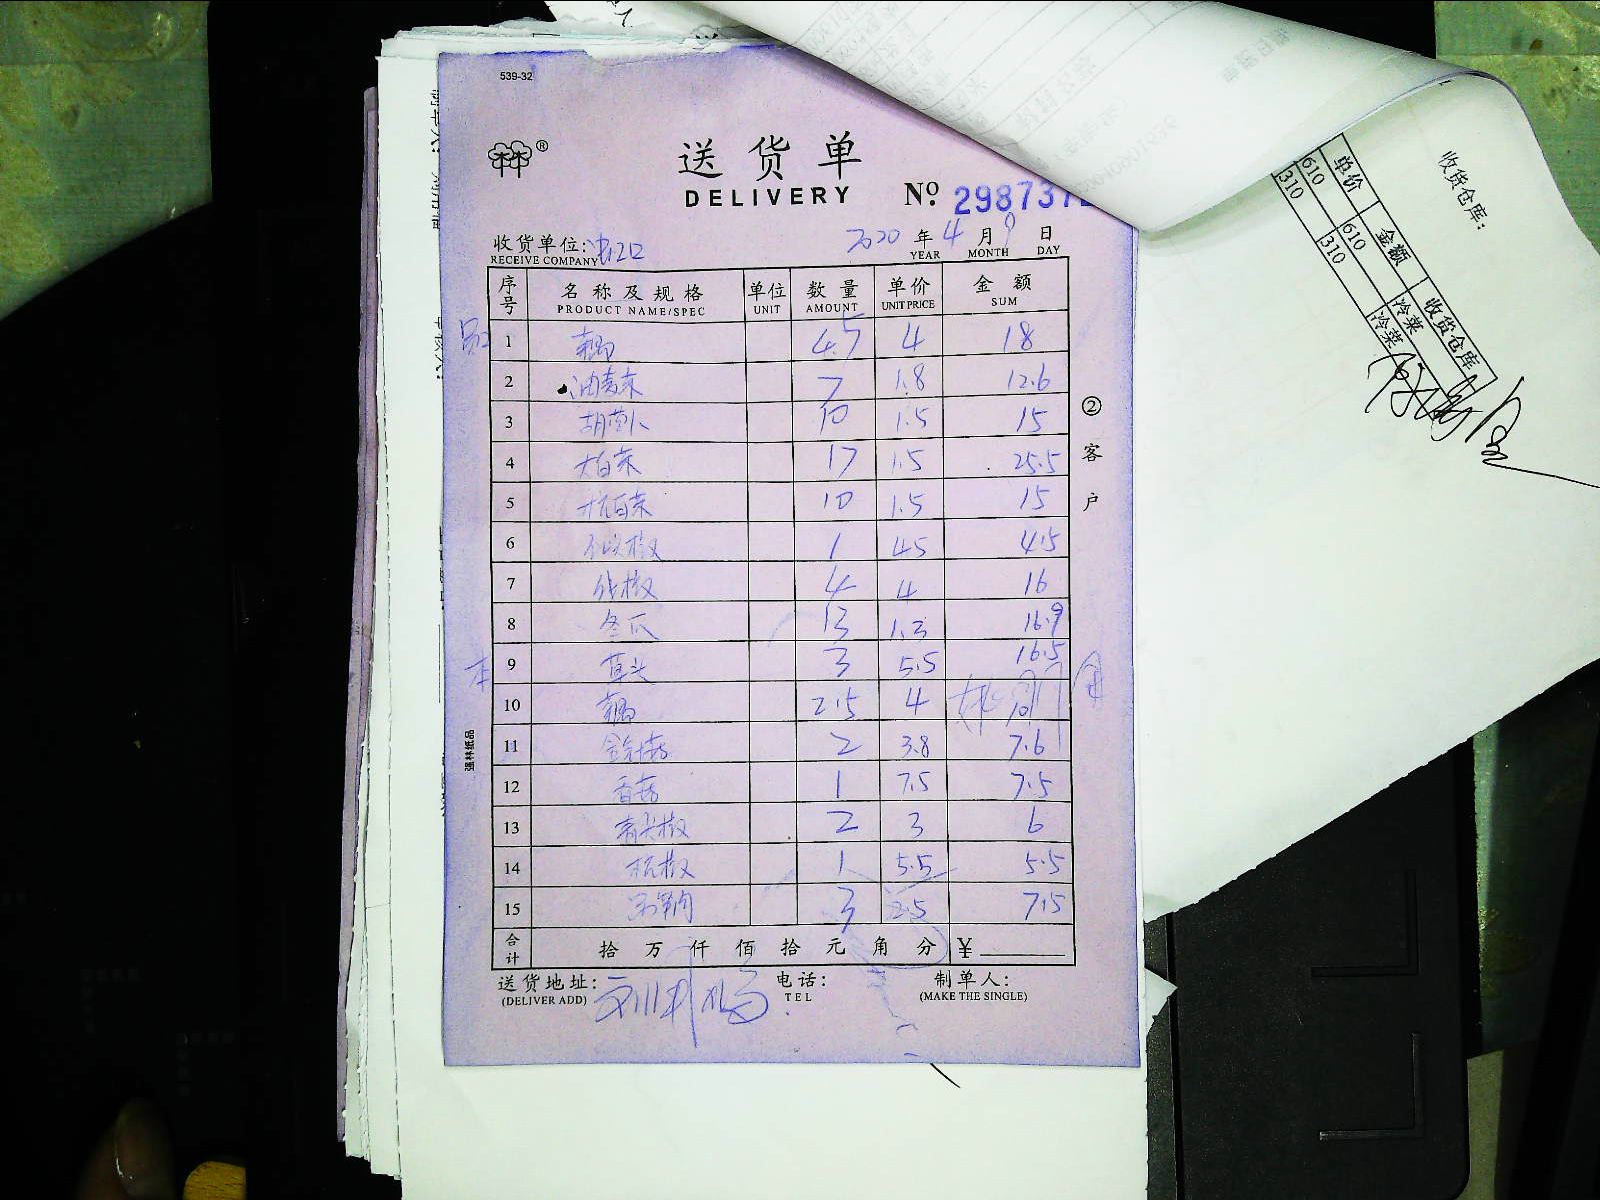 539-32
送货单
DELIVERY
№ 298737
收货单位:
2020 年 4 月 9 日
RECEIVE COMPANY YEAR MONTH DAY
序号 名称及规格 单位 数量 单价 金额
PRODUCT NAME/SPEC UNIT AMOUNT UNIT PRICE SUM
1 藕 4.5 4 18
2 油麦菜 7 1.8 12.6
3 胡萝卜 10 1.5 15
4 大白菜 17 1.5 25.5
5 杭白菜 10 1.5 15
6 椒 1 4.5 4.5
7 线椒 4 4 16
8 冬瓜 13 1.3 16.9
9 草头 3 5.5 16.5
10 藕 2.5 4
11 金针菇 2 3.8 7.6
12 香菇 1 7.5 7.5
13 青尖椒 2 3 6
14 杭椒 1 5.5 5.5
15 3 2.5 7.5
合计 拾 万 仟 佰 拾 元 角 分 ¥
送货地址: 电话: 制单人:
(DELIVER ADD) TEL (MAKE THE SINGLE)
② 客户
强林纸品
收货仓库:
单价 金额 收货仓库
610 610 冷菜
310 310 冷菜